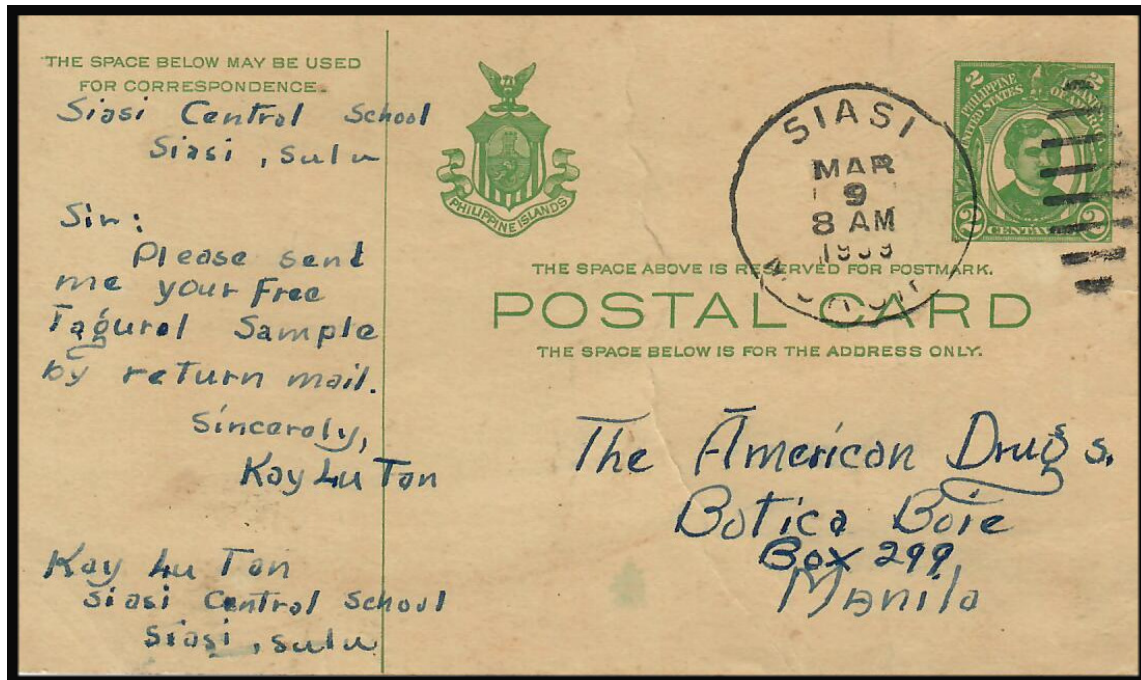 THE SPACE BELOW MAY BE USED
FOR CORRESPONDENCE.
Siasi Central School
Siasi, Sulu
Sir:
Please send
me your Free
Tagurol Sample
by return mail.
Sincerely,
Kay Lu Tan
Kay Lu Tan
Siasi Central School
Siasi, Sulu
PHILIPPINE ISLANDS
SIASI
MAR
9
8 AM
2 2
PHILIPPINE ISLANDS
UNITED STATES OF AMERICA
2 CENTAVOS 2
THE SPACE ABOVE IS RESERVED FOR POSTMARK.
POSTAL CARD
THE SPACE BELOW IS FOR THE ADDRESS ONLY.
The American Drug s.
Botica Boie
Box 299
Manila